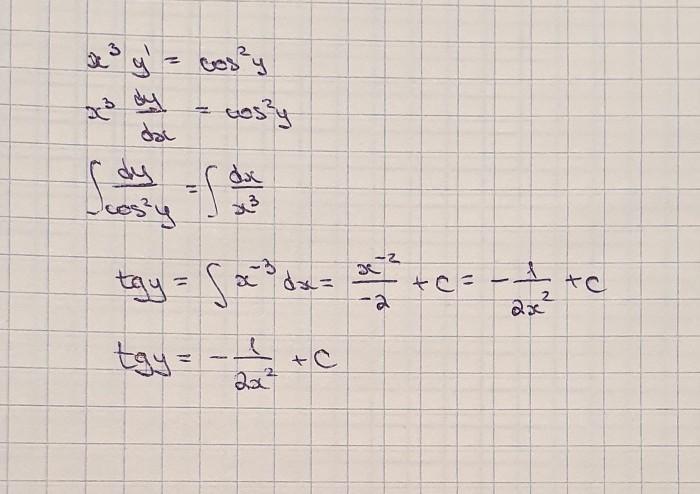 x³ y' = cos²y
x³ dy/dx = cos²y
∫ dy/cos²y = ∫ dx/x³
tgy = ∫ x⁻³ dx = x⁻²/-2 + C = - 1/2x² + C
tgy = - 1/2x² + C